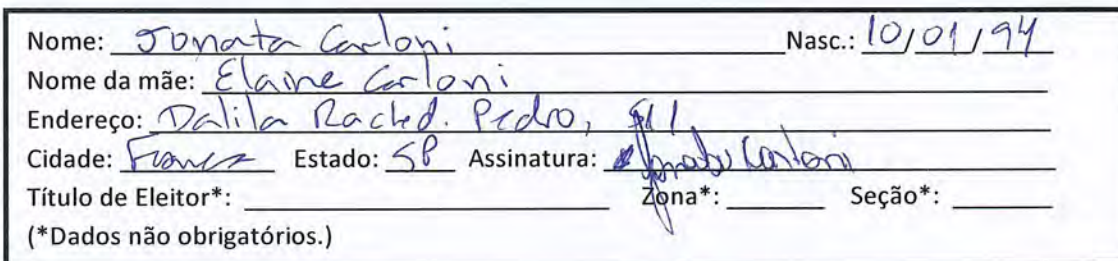 Nome: Jonata Carloni Nasc.: 10/01/94
Nome da mãe: Elaine Carloni
Endereço: Dalila Rached. Pedro, 511
Cidade: Franca Estado: SP Assinatura: Jonata Carloni
Título de Eleitor*: Zona*: Seção*:
(*Dados não obrigatórios.)